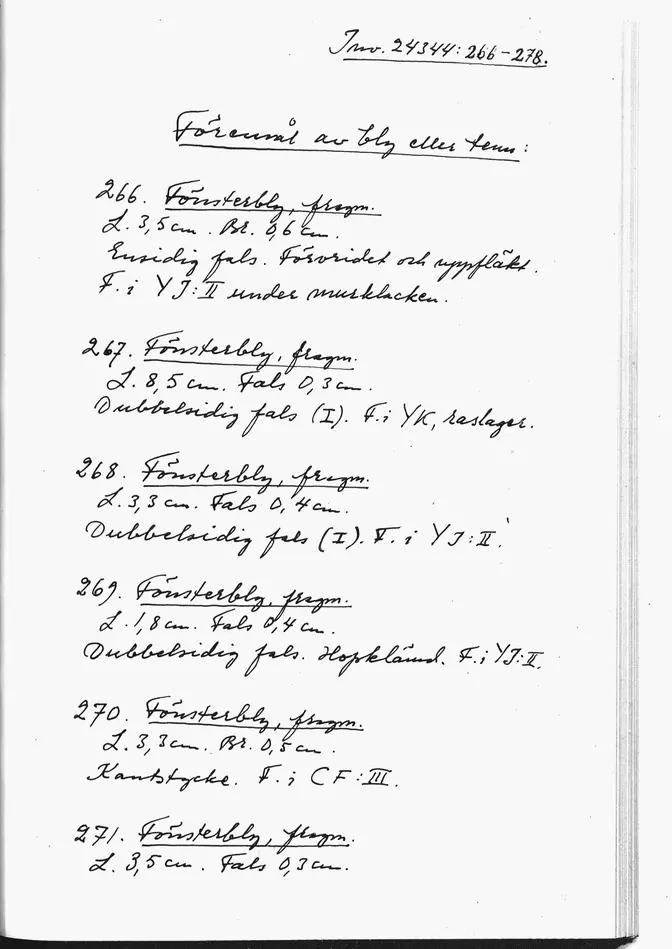 Inv. 24344: 266-278.
Föremål av bly eller tenn:
266. Fönsterbly, fragm.
L. 3,5 cm. Br. 0,6 cm.
Ensidig fals. Förvridet och uppfläkt.
F. i YJ:II under murklacken.
267. Fönsterbly, fragm.
L. 8,5 cm. Fals 0,3 cm.
Dubbelsidig fals (I). F. i YK, raslager.
268. Fönsterbly, fragm.
L. 3,3 cm. Fals 0,4 cm.
Dubbelsidig fals (I). F. i YJ:II.
269. Fönsterbly, fragm.
L. 1,8 cm. Fals 0,4 cm.
Dubbelsidig fals. Hopklämd. F. i YJ:II.
270. Fönsterbly, fragm.
L. 3,3 cm. Br. 0,5 cm.
Kantstycke. F. i CF:III.
271. Fönsterbly, fragm.
L. 3,5 cm. Fals 0,3 cm.